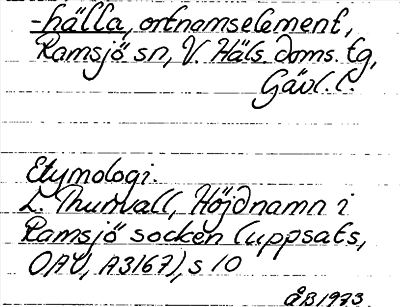 -hälla, ortnamselement,
Ramsjö sn, V. Häls. doms. tg,
Gävl. l.
Etymologi.
L. Thunvall, Höjdnamn i
Ramsjö socken (uppsats,
OAU, A3167), s 10
ÅB 1973.